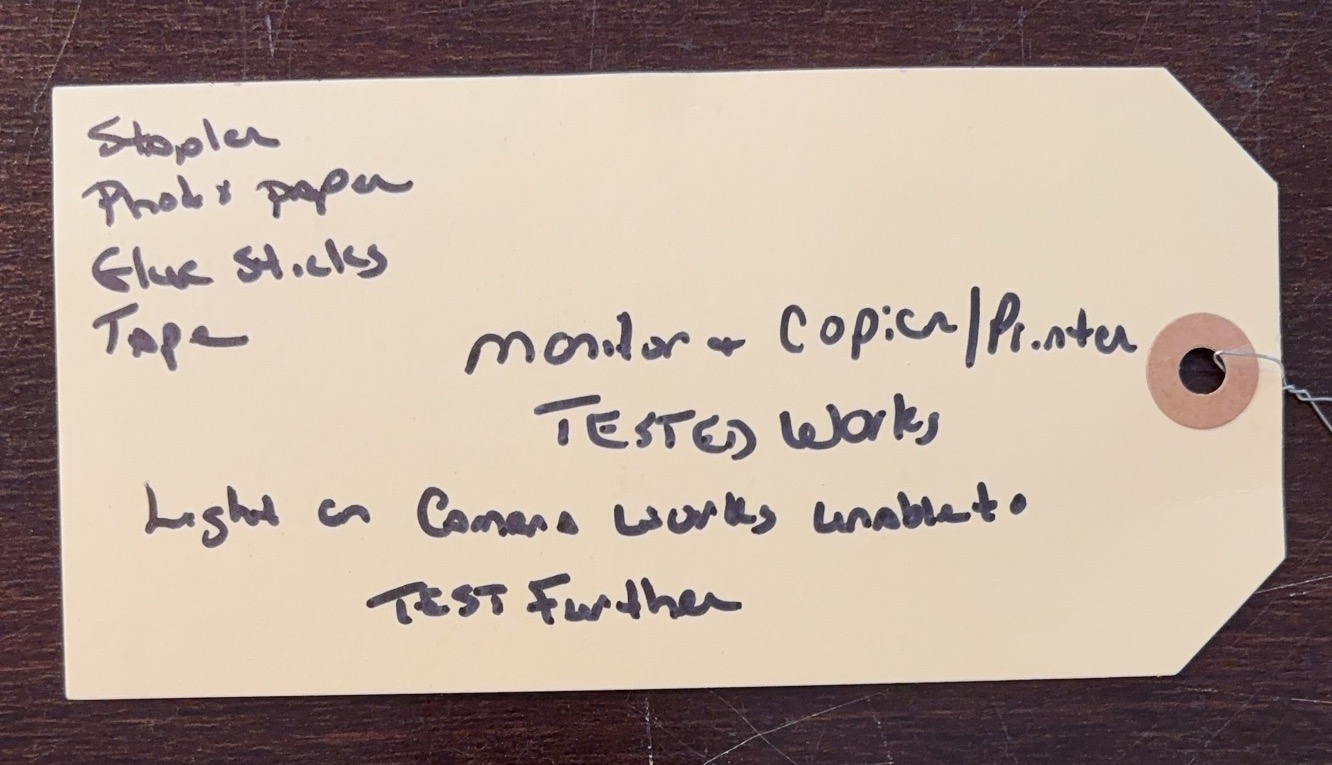 Stapler
Photo paper
Glue Sticks
Tape
monitor + Copier/Printer
TESTED Works
Light on Camera works unable to
TEST Further